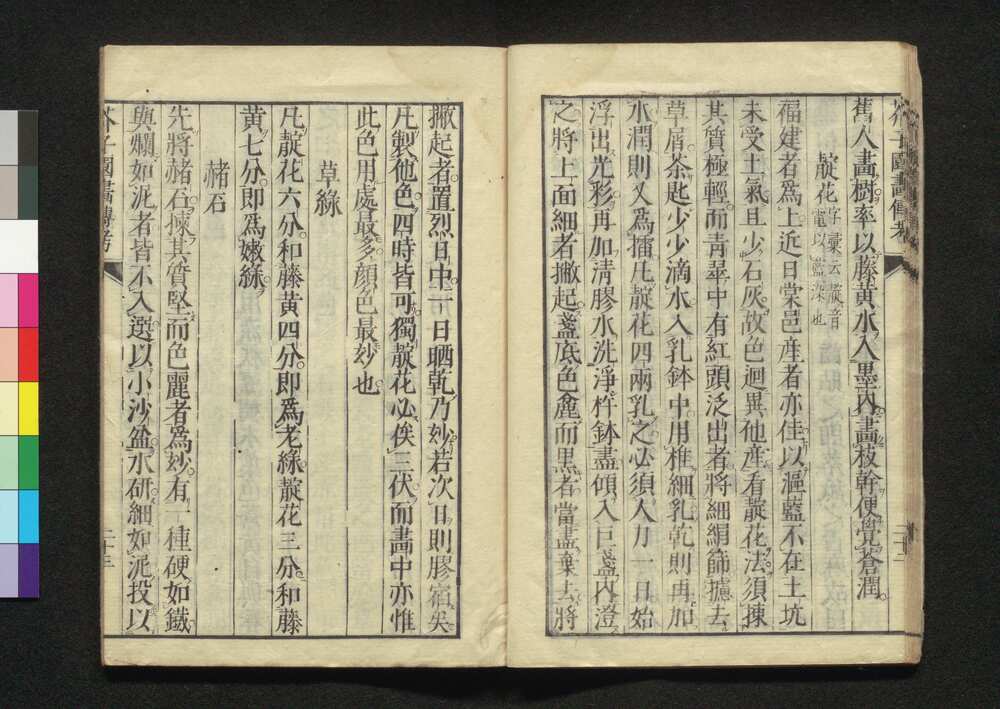 芥子園畫傳考
舊人畫樹率以藤黃水入墨內畫枝幹便覺蒼潤
靛花字彙云靛音
電以藍染也
福建者爲上近日棠邑產者亦佳以漚藍不在土坑
未受土氣且少石灰故色迥異他產看靛花法須揀
其質極輕而青翠中有紅頭泛出者將細絹篩攄去
草屑茶匙少少滴水入乳鉢中用椎細乳乾則再加
水潤則又爲擂凡靛花四兩乳之必須人力一日始
浮出光彩再加清膠水洗淨杵鉢盡傾入巨盞內澄
之將上面細者撇起盞底色麄而黑者當盡棄去將
撇起者置烈日中一日晒乾乃妙若次日則膠宿矣
凡製他色四時皆可獨靛花必俟三伏而畫中亦惟
此色用處最多顏色最妙也
草綠
凡靛花六分和藤黃四分即爲老綠靛花三分和藤
黃七分即爲嫩綠
赭石
先將赭石揀其質堅而色麗者爲妙有一種硬如鐵
與爛如泥者皆不入選以小沙盆水研細如泥投以
芥子園畫傳考
二十三